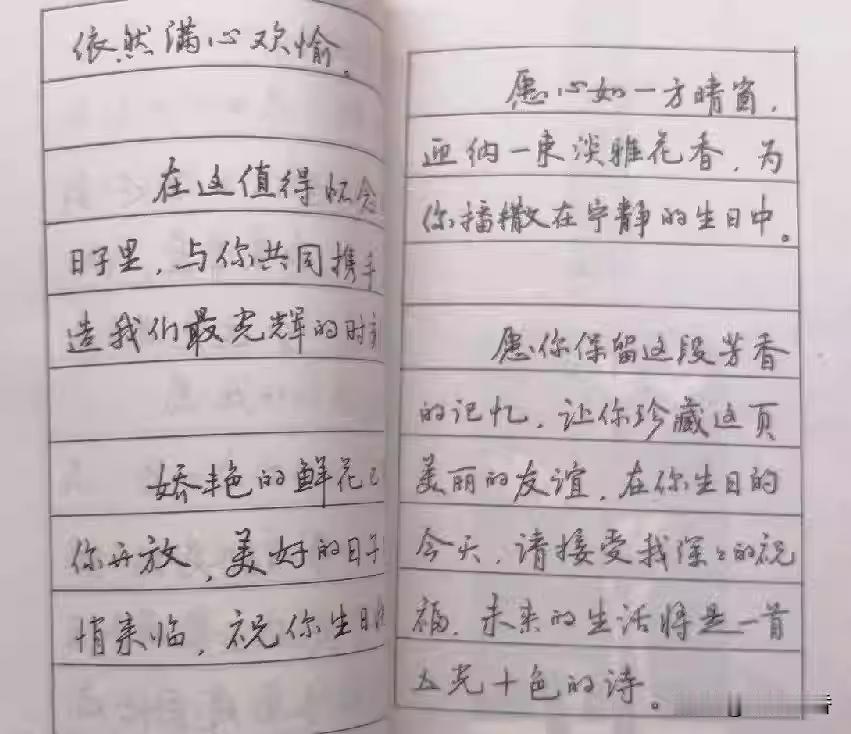 依然满心欢愉。
在这值得怀念
日子里，与你共同携手
造我们最光辉的时
娇艳的鲜花已
你开放，美好的日子
悄来临，祝你生日
愿心如一方晴窗，
迎纳一束淡雅花香，为
你播撒在宁静的生日中。
愿你保留这段芳香
的记忆，让你珍藏这页
美丽的友谊，在你生日的
今天，请接受我深々的祝
福，未来的生活将是一首
五光十色的诗。